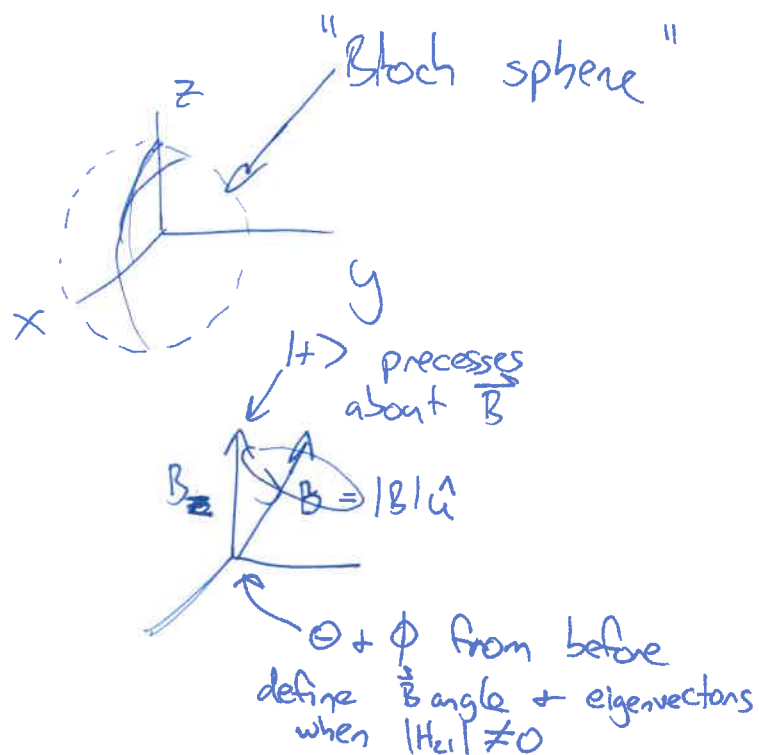 "Bloch sphere"
z
y
x
|+> precesses
about B⃗
B_z
B = |B| û
θ + ϕ from before
define B⃗ angle + eigenvectors
when |H₂₁| ≠ 0